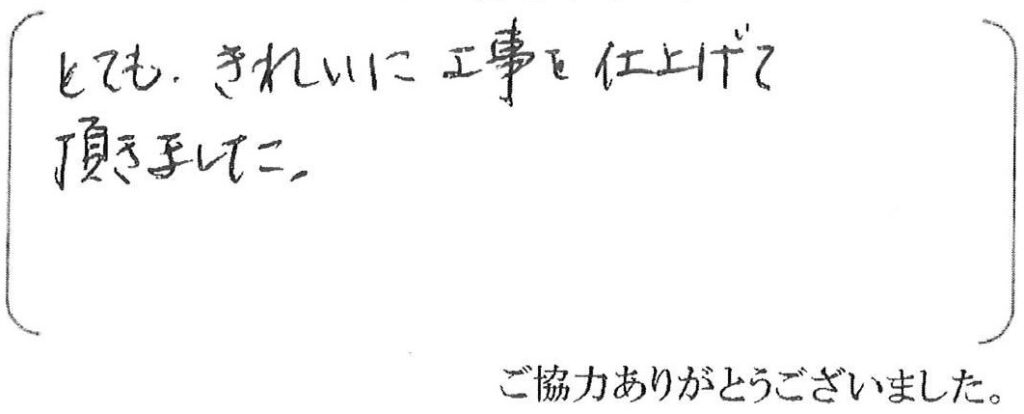 とても、きれいに工事を仕上げて
頂きました。
ご協力ありがとうございました。